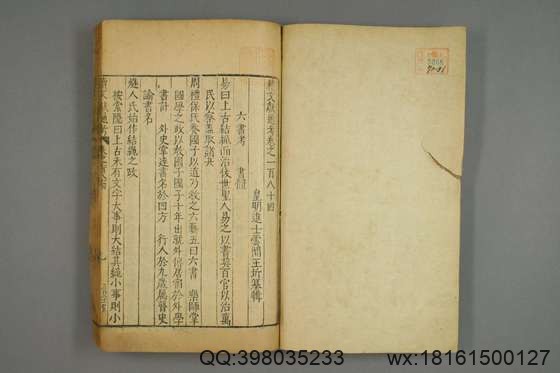 續文獻通考卷之一百八十四
皇明進士雲間王圻纂輯
六書考 書體
易曰上古結繩而治後世聖人易之以書契百官以治萬
民以察蓋取諸夬
周禮保氏養國子以道乃教之六藝五曰六書 樂師掌
國學之政以教國子國子十年出就外傅居宿於外學
書計 外史掌達書名於四方 行人於九歲屬瞽史
諭書名
燧人氏始作結繩之政
按索隱曰上古未有文字大事則大結其繩小事則小
QQ:398035233
wx:18161500127